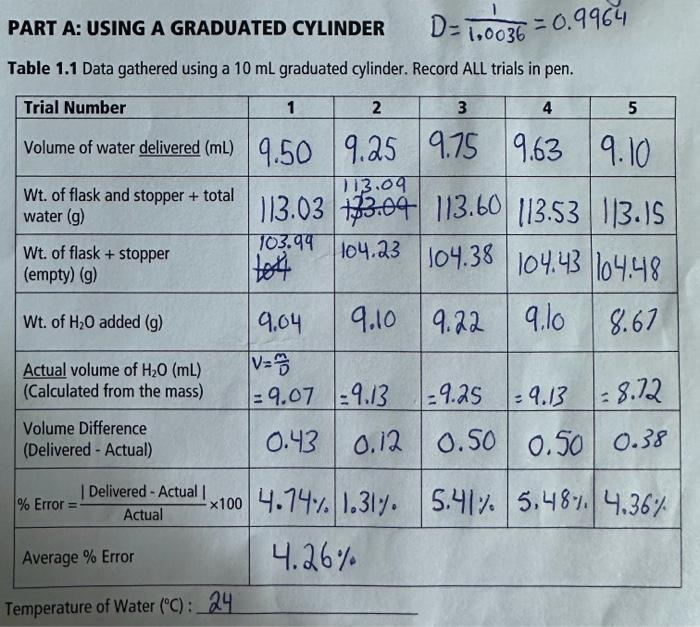 PART A: USING A GRADUATED CYLINDER D= 1/1.0036 = 0.9964
Table 1.1 Data gathered using a 10 mL graduated cylinder. Record ALL trials in pen.
Trial Number 1 2 3 4 5
Volume of water delivered (mL) 9.50 9.25 9.75 9.63 9.10
113.09
Wt. of flask and stopper + total water (g) 113.03 133.09 113.60 113.53 113.15
103.99
Wt. of flask + stopper (empty) (g) 104 104.23 104.38 104.43 104.48
Wt. of H₂O added (g) 9.04 9.10 9.22 9.10 8.67
V=m/D
Actual volume of H₂O (mL) (Calculated from the mass) =9.07 =9.13 =9.25 =9.13 =8.72
Volume Difference (Delivered - Actual) 0.43 0.12 0.50 0.50 0.38
% Error = | Delivered - Actual | / Actual ×100 4.74% 1.31% 5.41% 5.48% 4.36%
Average % Error 4.26%
Temperature of Water (°C) : 24